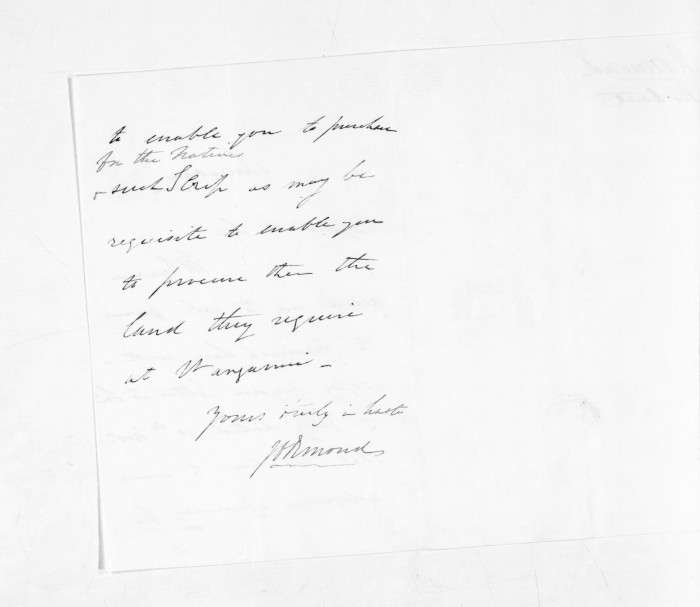 to enable you to purchase
for the Natives
such Scrip as may be
requisite to enable you
to procure them the
land they require
at Wangarei -
Yours truly in haste
JDOrmond